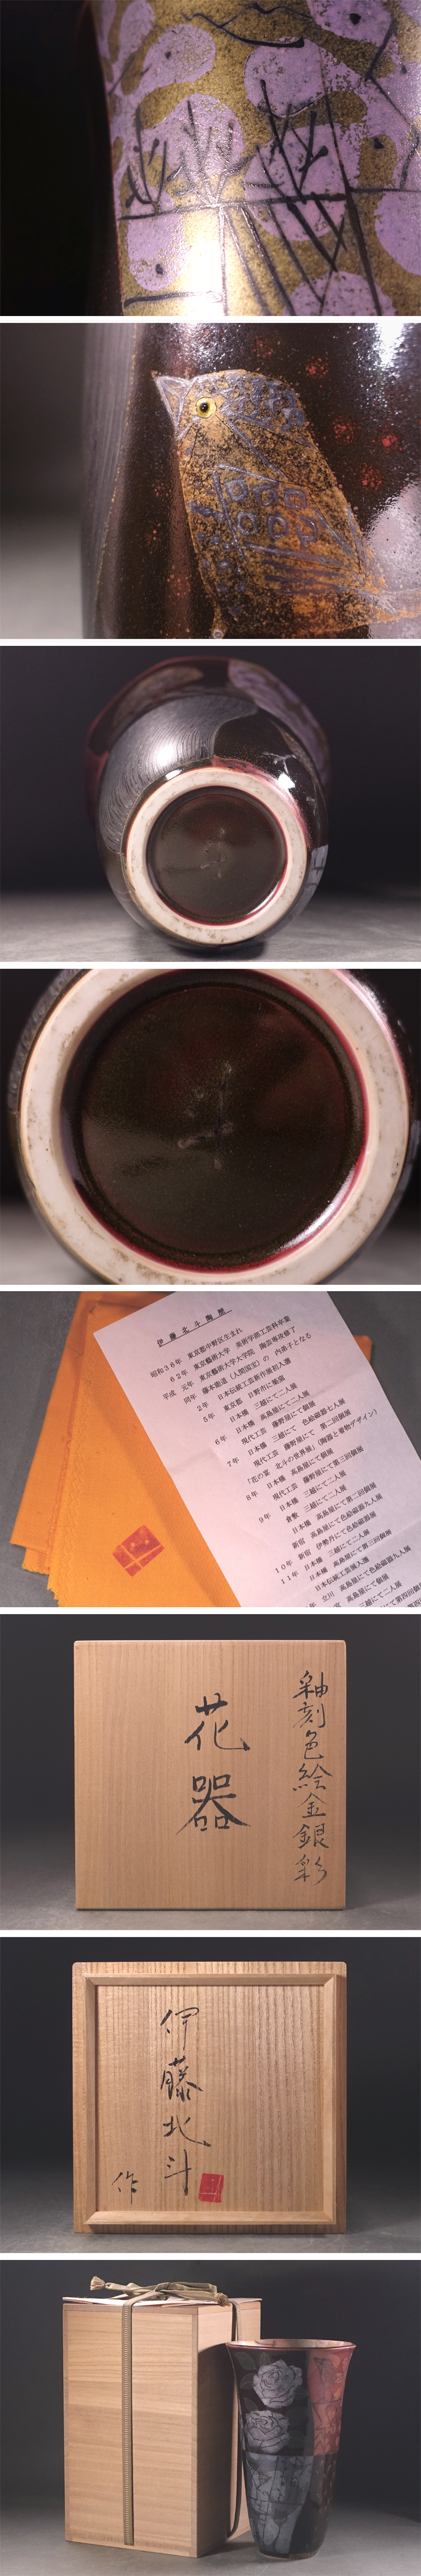 伊藤北斗陶歴
昭和36年 東京都中野区生まれ
62年 東京藝術大学 美術学部工芸科卒業
平成 元年 東京藝術大学大学院 陶芸専攻修了
同年 藤本能道（人間国宝）の 内弟子となる
2年 日本伝統工芸新作展初入選
5年 東京都 日野市に築窯
日本橋 三越にて二人展
6年 日本橋 高島屋にて二人展
現代工芸 藤野屋にて個展
7年 日本橋 三越にて 色絵磁器七人展
現代工芸 藤野屋にて 第二回個展
「花の宴 北斗の世界展」（陶器と着物デザイン）
8年 日本橋 高島屋にて個展
現代工芸 藤野屋にて第三回個展
9年 日本橋 三越にて二人展
倉敷 三越にて二人展
日本橋 高島屋にて第二回個展
新宿 高島屋にて色絵磁器九人展
10年 新宿 伊勢丹にて色絵磁器展
11年 日本橋 三越にて二人展
日本橋 高島屋にて第三回個展
日本伝統工芸展入選
立川 高島屋にて色絵磁器九人展
高島屋にて個展
にて第四回個展
釉刻色絵金銀彩
花器
伊藤北斗
作